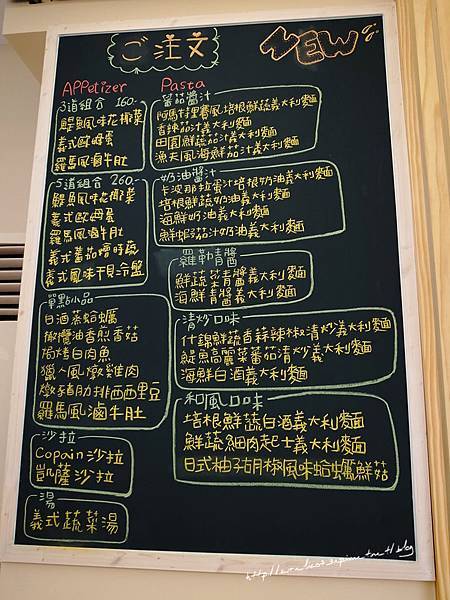 ご注文
NEW
APPetizer
3道組合 160-
鯷魚風味花椰菜
義式歐姆蛋
羅馬風滷牛肚
5道組合 260-
鯷魚風味花椰菜
義式歐姆蛋
羅馬風滷牛肚
義式蕃茄燉時蔬
義式風味干貝冷盤
單點小品
日酒蒸蛤蠣
橄欖油香煎香菇
焗烤白肉魚
獵人風燉雞肉
燉豬肋排西西里豆
羅馬風滷牛肚
沙拉
Copain沙拉
凱薩沙拉
湯
義式蔬菜湯
Pasta
蕃茄醬汁
阿馬特里賽風培根鮮蔬義大利麵
香辣茄汁義大利麵
田園鮮蔬茄汁義大利麵
漁夫風海鮮茄汁義大利麵
奶油醬汁
卡波那拉蛋汁培根奶油義大利麵
培根鮮蔬奶油義大利麵
海鮮奶油義大利麵
鮮蝦茄汁奶油義大利麵
羅勒青醬
鮮蔬菜青醬義大利麵
海鮮青醬義大利麵
清炒口味
什錦鮮蔬香蒜辣椒清炒義大利麵
鯷魚高麗菜蕃茄清炒義大利麵
海鮮白酒義大利麵
和風口味
培根鮮蔬白酒義大利麵
鮮蔬細肉起士義大利麵
日式柚子胡椒風味蛤蠣鮮菇